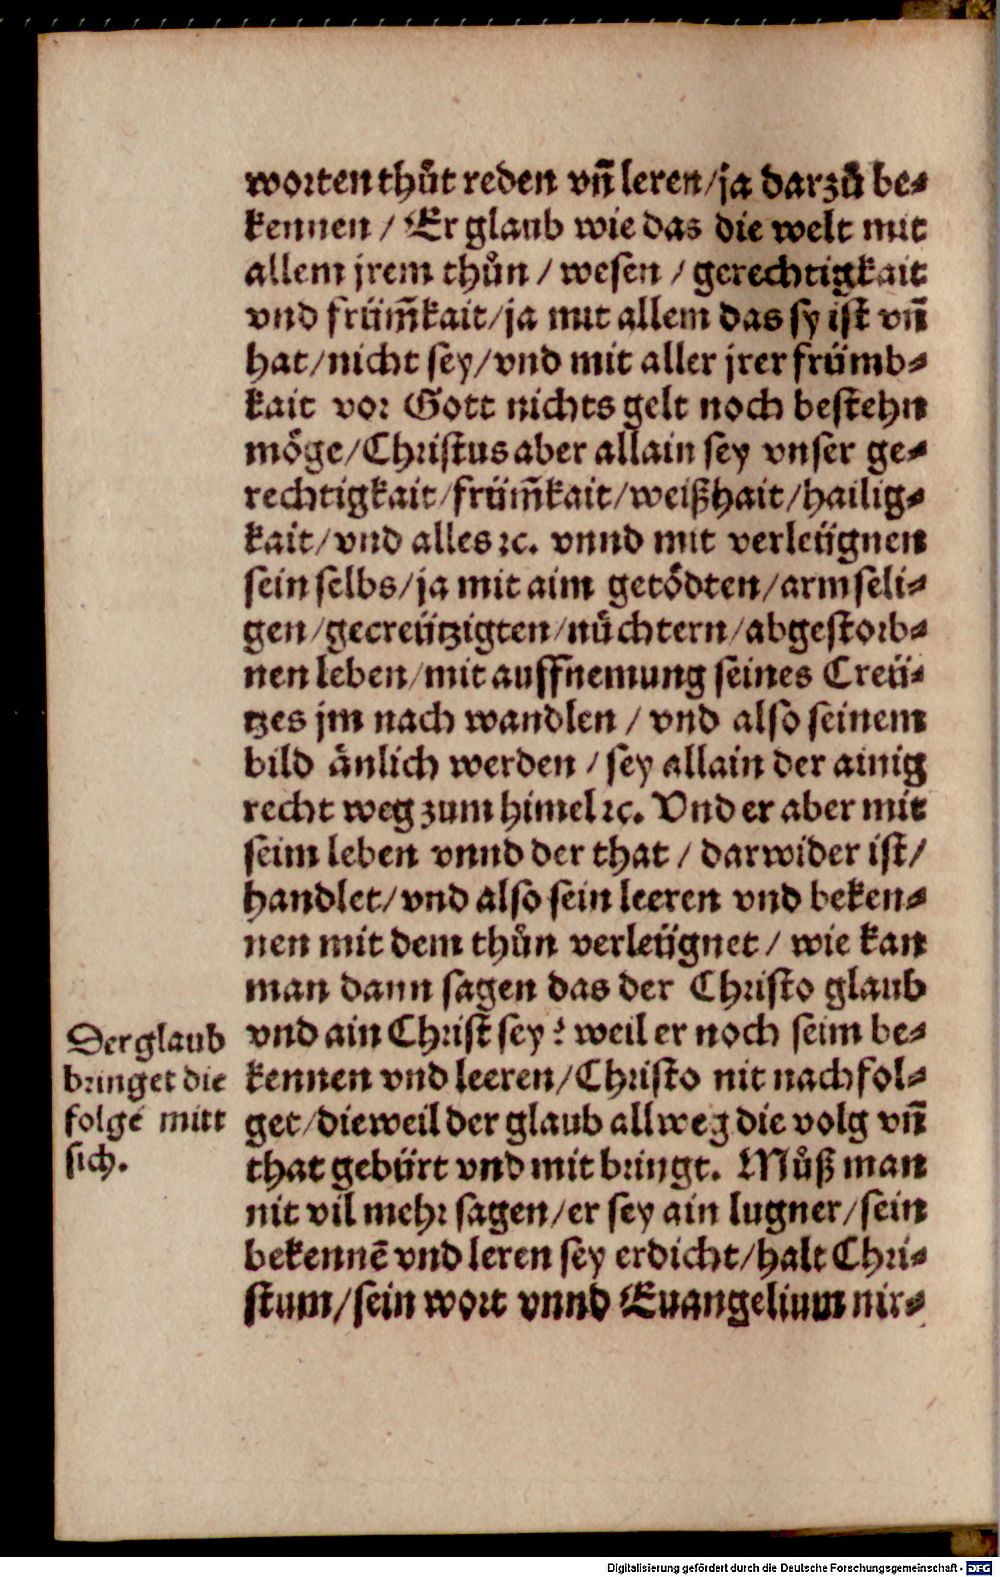 worten thůt reden vñ leren/ja darzů be-
kennen / Er glaub wie das die welt mit
allem jrem thůn / wesen / gerechtigkait
vnd früm̃kait/ja mit allem das sy ist vñ
hat/nicht sey/vnd mit aller jrer frümb-
kait vor Gott nichts gelt noch bestehn
möge/Christus aber allain sey vnser ge-
rechtigkait/früm̃kait/weißhait/hailig-
kait/vnd alles ꝛc. vnnd mit verleügnen
sein selbs/ja mit aim getödten/armseli-
gen/gecreützigten/nüchtern/abgestorb-
nen leben/mit auffnemung seines Creü-
tzes jm nach wandlen / vnd also seinem
bild änlich werden / sey allain der ainig
recht weg zum himel ꝛc. Vnd er aber mit
seim leben vnnd der that / darwider ist/
handlet/vnd also sein leeren vnd beken-
nen mit dem thůn verleügnet / wie kan
man dann sagen das der Christo glaub
vnd ain Christ sey? weil er noch seim be-
kennen vnd leeren/Christo nit nachfol-
get/dieweil der glaub allweg die volg vñ
that gebürt vnd mit bringt. Můß man
nit vil mehr sagen/er sey ain lugner/sein
bekennē vnd leren sey erdicht/halt Chri-
stum/sein wort vnnd Euangelium nir-
Der glaub
bringet die
folge mitt
sich.
Digitalisierung gefördert durch die Deutsche Forschungsgemeinschaft - DFG